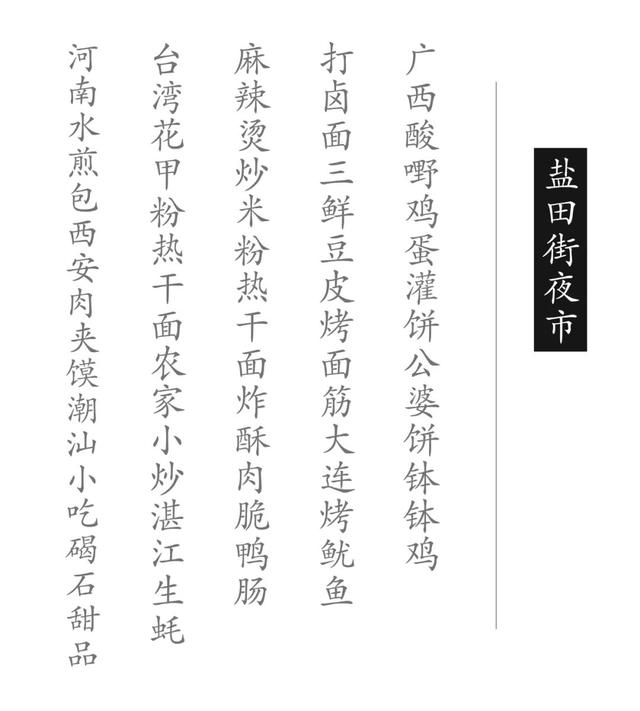 盐田街夜市
广西酸嘢鸡蛋灌饼公婆饼钵钵鸡
打卤面三鲜豆皮烤面筋大连烤鱿鱼
麻辣烫炒米粉热干面炸酥肉脆鸭肠
台湾花甲粉热干面农家小炒湛江生蚝
河南水煎包西安肉夹馍潮汕小吃碣石甜品